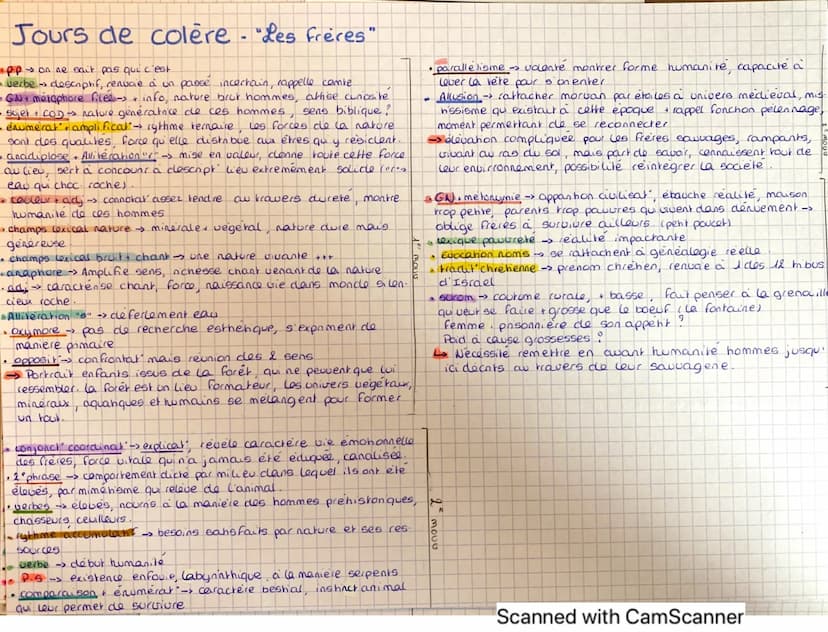 Jours de colère - "Les frères"
• PP → on ne sait pas qui c'est
• verbe → descriptif, renvoie à un passé incertain, rappelle conte
• GN + métaphore filée → + info, nature brut hommes, attise curiosité
• sujet + COD → nature génératrice de ces hommes, sens biblique?
• énumérat° + amplificat° → rythme ternaire, les forces de la nature
sont des qualités, force qu'elle distribue aux êtres qui y résident.
• anadiplose + Allitération "r" → mise en valeur, donne toute cette force
au lieu, sert à concourir à descript° lieu extrêmement solide
eau qui choc roche).
• couleur + adj → connotat° assez tendre au travers dureté, montre
humanité de ces hommes
• champs lexical nature → minérale + végétal, nature dure mais
généreuse
• champs lexical bruit + chant → une nature vivante +++
• anaphore → Amplifie sens, richesse chant venant de la nature
• adj → caractérise chant, force, naissance vie dans monde silen-
cieux roche.
• Allitération → déferlement eau
• Oxymore → pas de recherche esthétique, s'expriment de
manière primaire
• opposit° → confrontat° mais réunion des 2 sens
→ Portrait enfants issus de la forêt, qui ne peuvent que lui
ressembler. La forêt est un lieu formateur, les univers végétaux,
minéraux, aquatiques et humains se mélangent pour former
un tout.
1° mouv
• conjonct° coordinat° → explicat°, révèle caractère vie émotionnelle
des frères, force vitale qui n'a jamais été éduquée, canalisée.
• 2° phrase → comportement dicté par milieu dans lequel ils ont été
élevés, par mimétisme qui relève de l'animal.
• verbes → élevés, nourris à la manière des hommes préhistoriques,
chasseurs cueilleurs.
• rythme accumulatif → besoins satisfaits par nature et ses res
sources
• verbe → début humanité
• P.S → existence enfouie, labyrinthique, à la manière serpents
• comparaison + énumérat° → caractère bestial, instinct animal
qui leur permet de survivre
• parallélisme → volonté montrer forme humanité, capacité à
lever la tête pour s'orienter
• Allusion → rattacher morvan par étoiles à univers médiéval, mis-
ticisme qui existait à cette époque + rappel fonction pèlerinage,
moment permettant de se reconnecter
→ élévation compliquée pour les frères sauvages, rampants,
vivant au ras du sol, mais part de savoir, connaissent tout de
leur environnement, possibilité réintégrer la société.
• GN + métonymie → apparition civilisat°, ébauche réalité, maison
trop petite, parents trop pauvres qui vivent dans dénuement →
oblige frères à survivre ailleurs (petit poucet)
• lexique pauvreté → réalité impactante
• évocation noms → se rattachent à généalogie réelle
• tradit° chrétienne → prénom chrétien, renvoie à 1 des 12 tribus
d'Israël
• surnom → coutume rurale, + basse, fait penser à la grenouille
qui veut se faire + grosse que le boeuf (La fontaine)
Femme : prisonnière de son appétit ?
Poid à cause grossesses ?
↳ Nécessité remettre en avant humanité hommes jusqu'
ici décrits au travers de leur sauvagerie.
Scanned with CamScanner